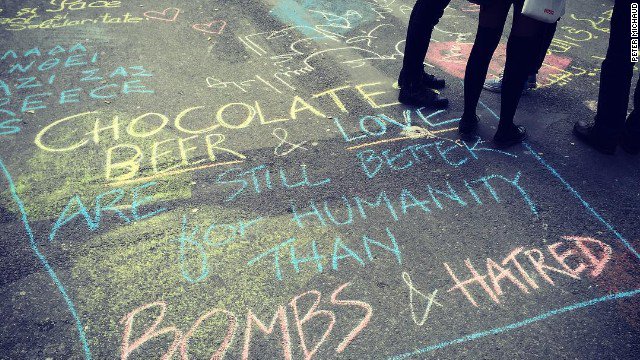 Pace
Solidarité
AAAAA
EECE
CHOCOLATE
BEER & LOVE
ARE STILL BETTER
for HUMANITY
THAN
BOMBS & HATRED
PETER MICHAUD
CNN